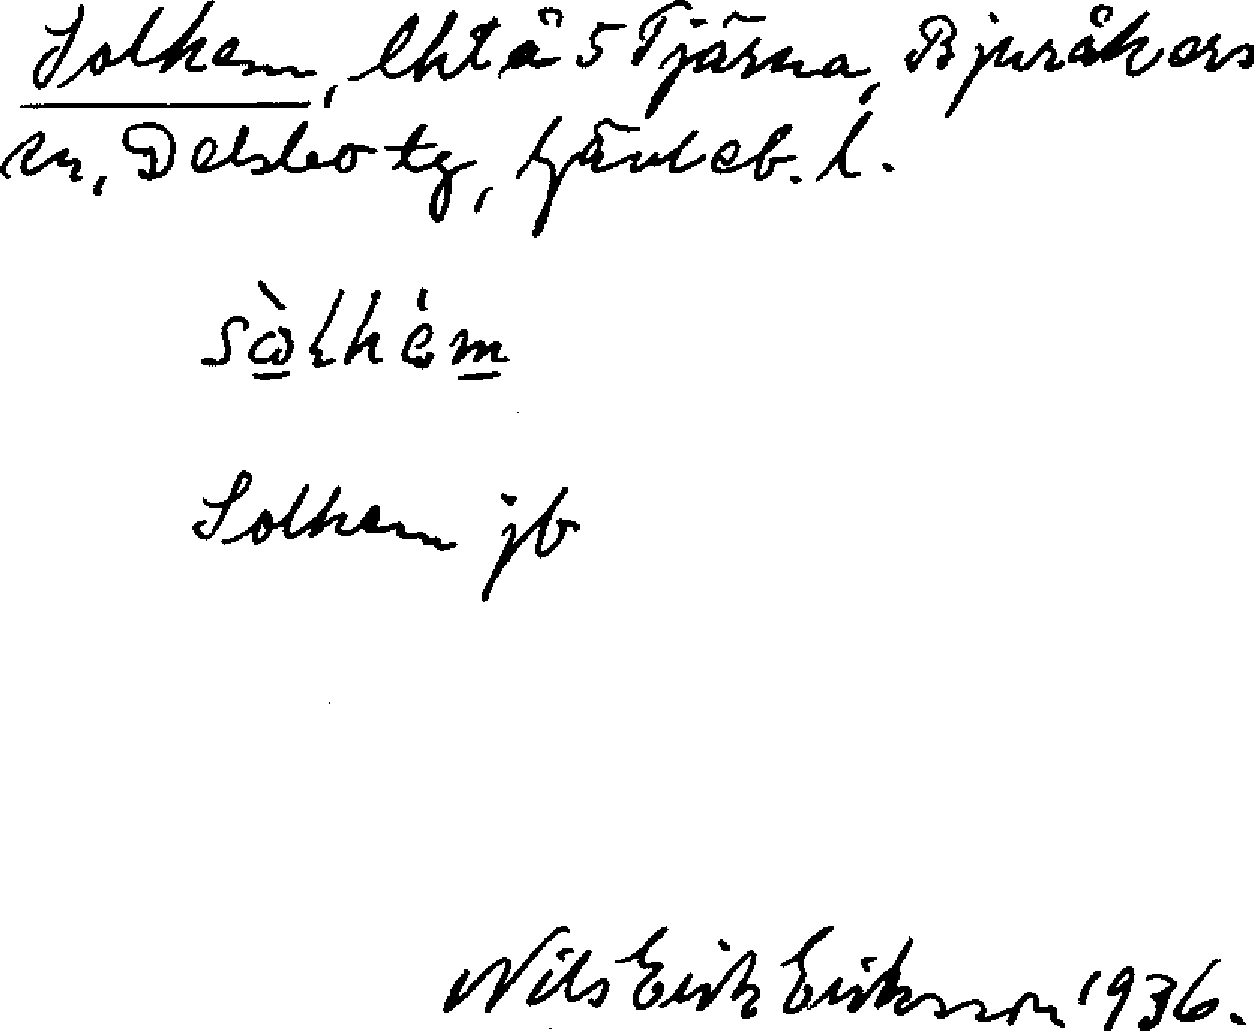 Solhem, lht å 5 Tjärna, Bjuråkers
sn, Delsbo tg, Gävleb. l.
sòlhèm
Solhem jb
Nils Erik Eriksson 1936.